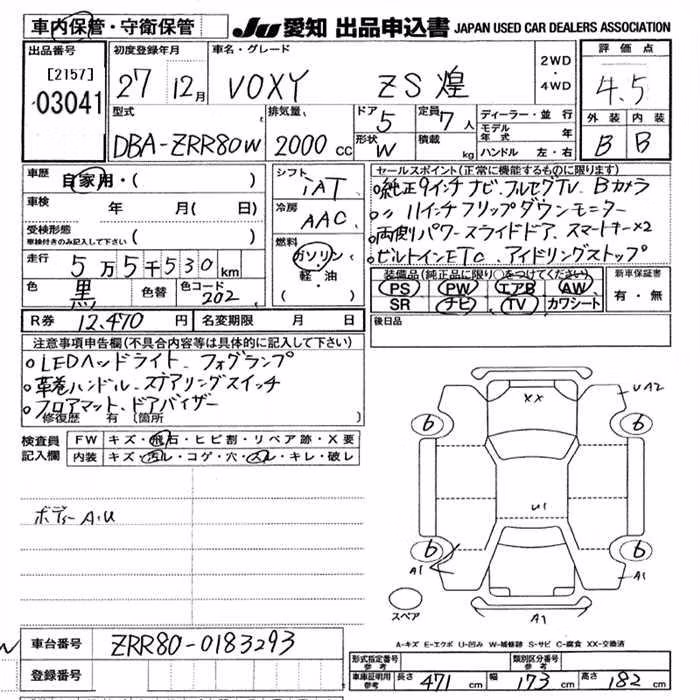 車内保管・守衛保管
JU 愛知 出品申込書 JAPAN USED CAR DEALERS ASSOCIATION
出品番号
[2157]
03041
初度登録年月
27 12月
車名・グレード
VOXY ZS煌
2WD
・
4WD
評価点
4.5
外装 内装
B B
型式
DBA-ZRR80W
排気量
2000 cc
ドア
5
形状
W
定員
7人
積載
kg
ディーラー・並行
モデル年式 年
ハンドル 左・右
車歴
自家用・( )
車検
年 月( 日)
受検形態
車検付きのみ記入して下さい ( )
走行
5万5千530km
色
黒
色替
色コード
202
シフト
iAT
冷房
AAC
燃料
ガソリン
軽・油
( )
セールスポイント(正常に機能するものに限ります)
○純正9インチナビ.フルセグTV. Bカメラ
○〃 11インチフリップダウンモニター
○両側パワースライドドア. スマートキー×2
○ビルトインETC. アイドリングストップ
装備品(純正品に限り○をつけてください)
PS PW エアB AW
SR ナビ TV カワシート
新車保証書
有・無
後日品
R券 12,470 円
名変期限 月 日
注意事項申告欄(不具合内容等は具体的に記入して下さい)
○LEDヘッドライト. フォグランプ
○革巻ハンドル. ステアリングスイッチ
○フロアマット. ドアバイザー
修復歴 有 (箇所 )
検査員
記入欄
FW キズ・飛石・ヒビ割・リペア跡・X要
内装 キズ・汚レ・コゲ・穴・スレ・キレ・破レ
ボディーA.U
XX
UA2
6
6
U1
6
6
A1
A1
A1
スペア
A-キズ E-エクボ U-凹み W-補修跡 S-サビ C-腐食 XX-交換済
車台番号
ZRR80-0183293
登録番号
形式指定番号
参考
類別区分番号
参考
車庫証明用
参考
長さ 471 cm
幅 173 cm
高さ 182 cm